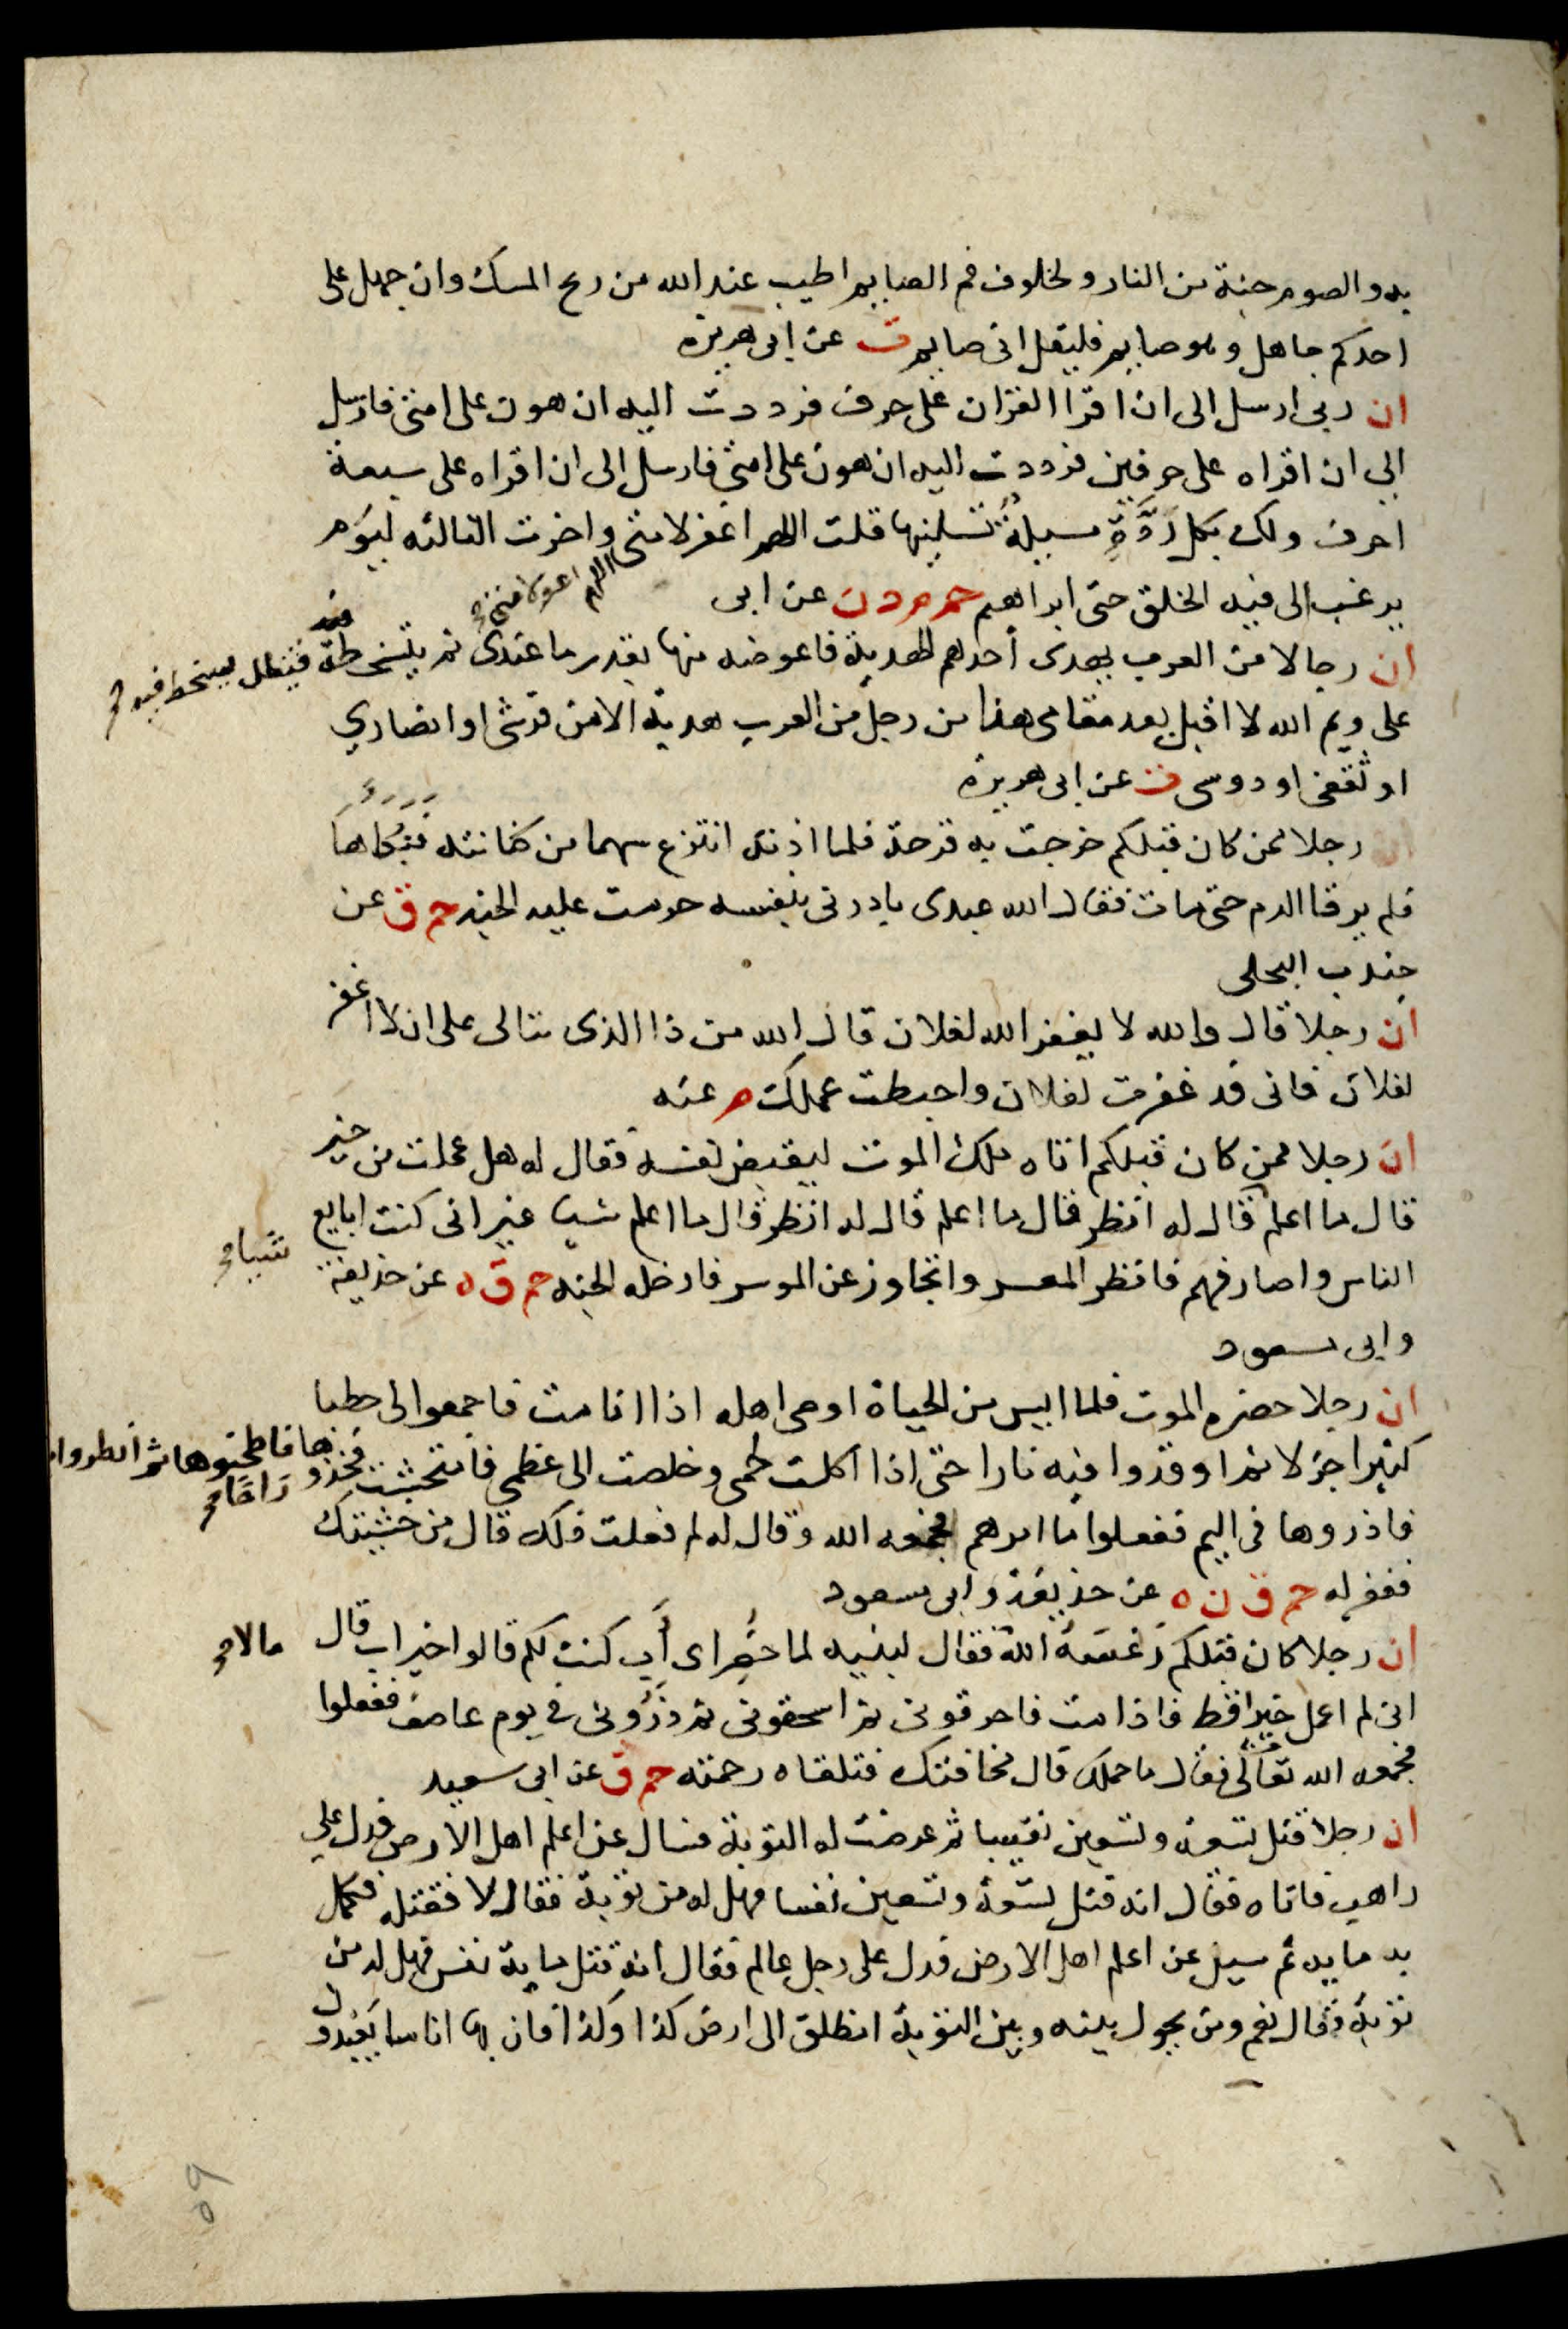 به والصوم جنة من النار ولخلوف فم الصايم اطيب عند الله من ريح المسك وان جهل على
احدكم جاهل وهو صايم فليقل انى صايم ت عن ابى هريرة
ان ربى ارسل الى ان اقرا القران على حرف فرددت اليه ان هون على امتى فارسل
الى ان اقراه على حرفين فرددت اليه ان هون على امتى فارسل الى ان اقراه على سبعة
احرف ولك بكل رَدَّةٍ مسيلةٌ تسلينها قلت اللهم اغفر لامتى واخرت الثالثه ليوم
اللهم اغفر لامتى
يرغب الى فيه الخلق حتى ابراهيم حم م د ن عن ابى
ان رجالا من العرب يهدى أحدهم الهدية فاعوضه منها بقدر ما عندى ثم يتسخطه فيظل يتسخط فيه
على ويم الله لا اقبل بعد مقامى هذا من رجل من العرب هدية الا من قرشى او انصاري
او ثقفى او دوسى ت عن ابى هريرة
ان رجلا ممن كان قبلكم خرجت به قرحة فلما اذته انتزع سهما من كنانته فنكاها
فلم يرقا الدم حتى مات فقال الله عبدى بادرنى بنفسه حرمت عليه الجنه حم ق عن
جندب البجلى
ان رجلا قال والله لا يغفر الله لفلان قال الله من ذا الذى يتالى على ان لا اغفر
لفلان فانى قد غفرت لفلان واحبطت عملك م عنه
ان رجلا ممن كان قبلكم اتاه ملك الموت ليقبض نفسه فقال له هل عملت من خير
قال ما اعلم قال له انظر قال ما اعلم قال له انظر قال ما اعلم شيا غير انى كنت ابايع
شيا
الناس واصارفهم فانظر المعسر واتجاوز عن الموسر فادخله الجنه حم ق ه عن حذيفة
وابى مسعود
ان رجلا حضره الموت فلما ايس من الحياة اوصى اهله اذا انا مت فاجمعوا لى حطبا
كثيرا جزلا ثم اوقدوا فيه نارا حتى اذا اكلت لحمى وخلصت الى عظمى فامتحشت فخذوها فاطحنوها ثم انظروا
راحا
فاذروها فى اليم ففعلوا ما امرهم فجمعه الله وقال له لم فعلت ذلك قال من خشيتك
فغفر له حم ق ن ه عن حذيفة وابى مسعود
ان رجلا كان قبلكم رَغَسَهُ الله فقال لبنيه لما حُضِر اى أَبٍ كنت لكم قالوا خير اب قال
مالا
انى لم اعمل خيرا قط فاذا مت فاحرقونى ثم اسحقونى ثم ذَرُّونى فى يوم عاصف ففعلوا
فجمعه الله تعالى فقال ما حملك قال مخافتك فتلقاه رحمته حم ق عن ابى سعيد
ان رجلا قتل تسعة وتسعين نفسا ثم عرضت له التوبة فسال عن اعلم اهل الارض فدل على
راهب فاتاه فقال انه قتل تسعة وتسعين نفسا فهل له من توبة فقال لا فقتله فكمل
به مايه ثم سيل عن اعلم اهل الارض فدل على رجل عالم فقال انه قتل ماية نفس فهل له من
توبة فقال نعم ومن يحول بينه وبين التوبة انطلق الى ارض كذا وكذا فان بها اناسا يعبدون
٥٩